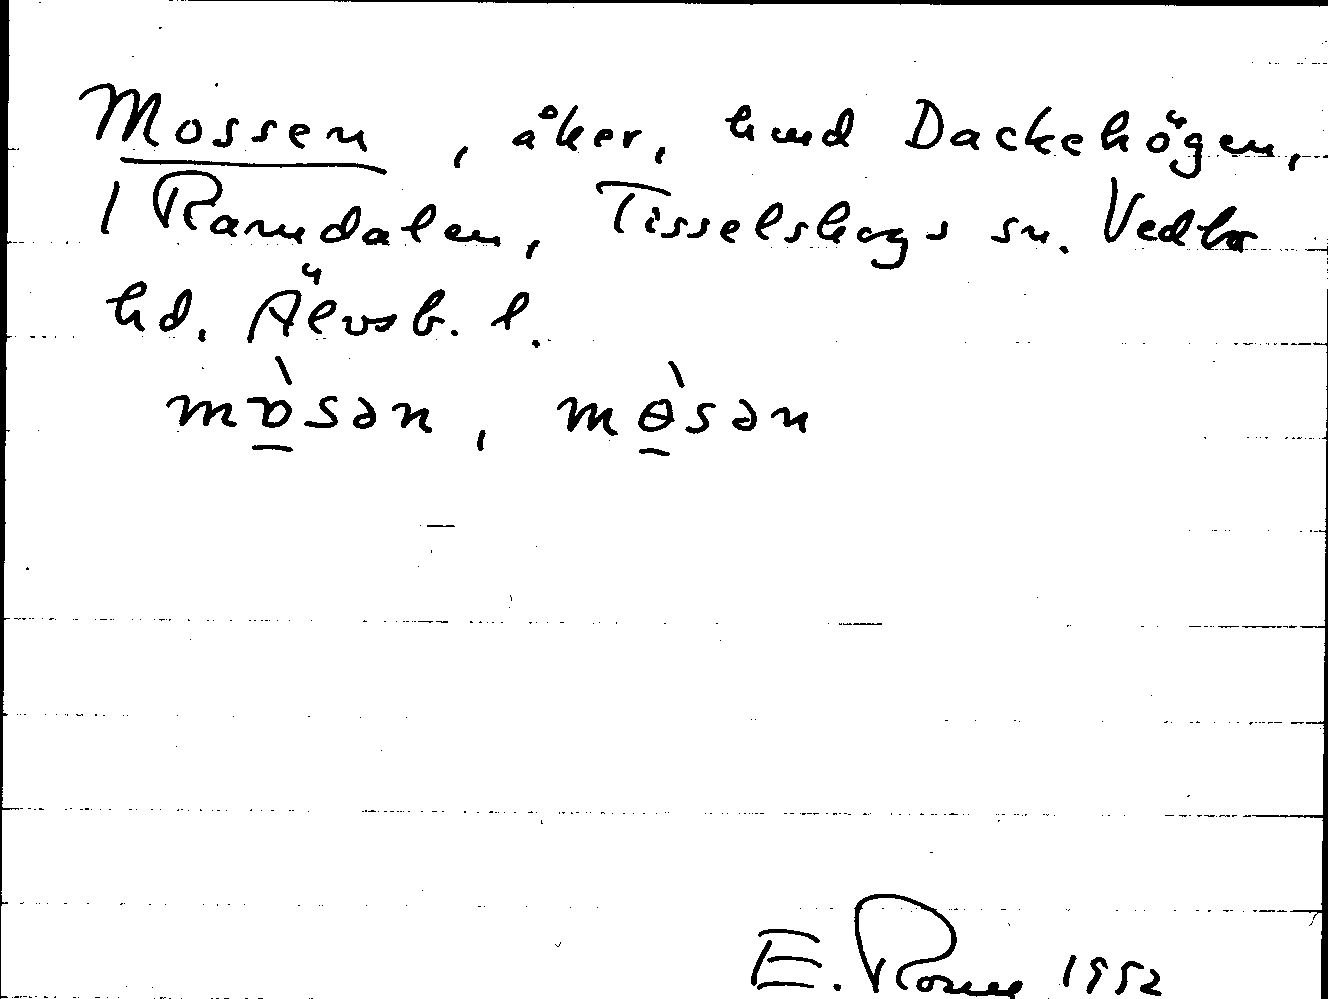 Mossen, åker, hmd Dackehögen,
1 Ramdalen, Tisselskogs sn. Vedbo
hd. Älvsb. l.
mɒ̀sən, mɵ̀sən
E. 1952